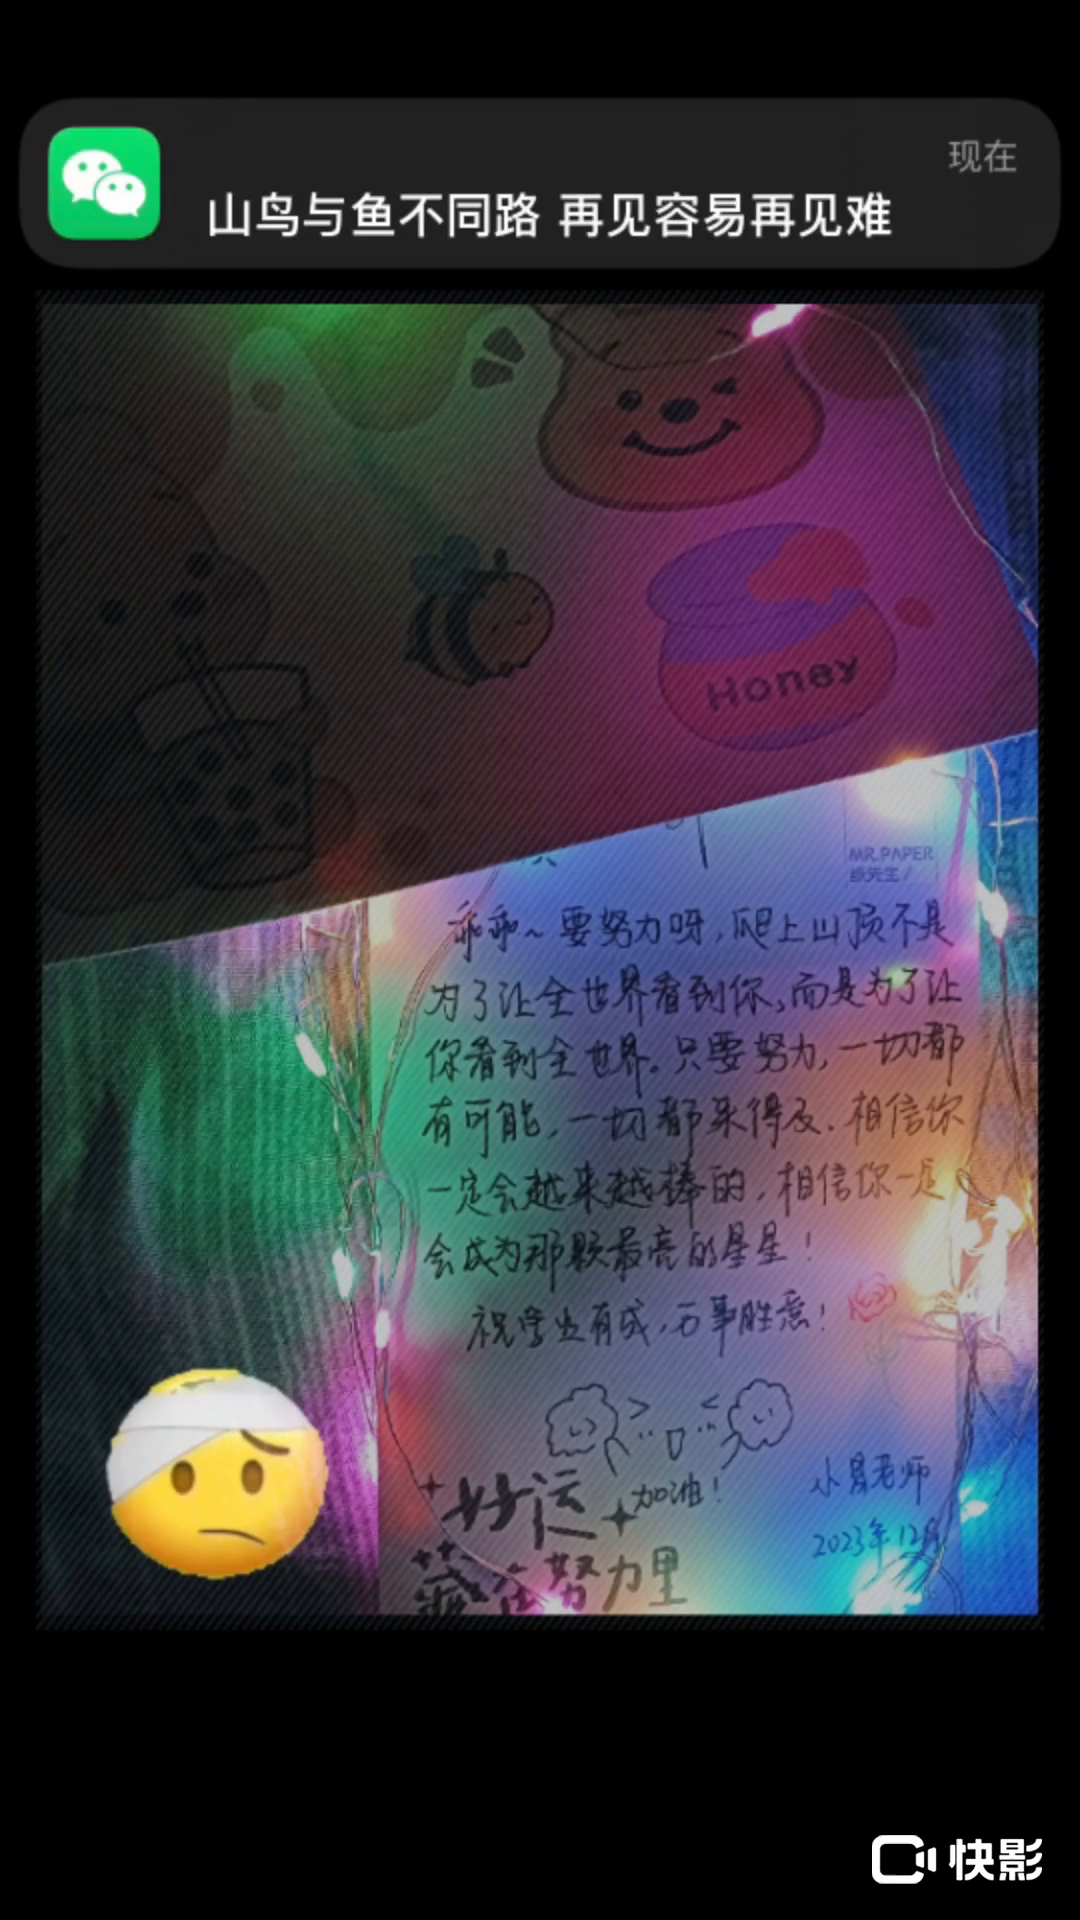 现在
山鸟与鱼不同路 再见容易再见难
Honey
MR.PAPER
纸先生/
乖乖~要努力呀,爬上山顶不是
为了让全世界看到你,而是为了让
你看到全世界。只要努力,一切都
有可能,一切都来得及.相信你
一定会越来越棒的,相信你一定
会成为那颗最亮的星星!
祝学业有成,万事胜意!
好运
加油!
藏在努力里
2023年12月
快影